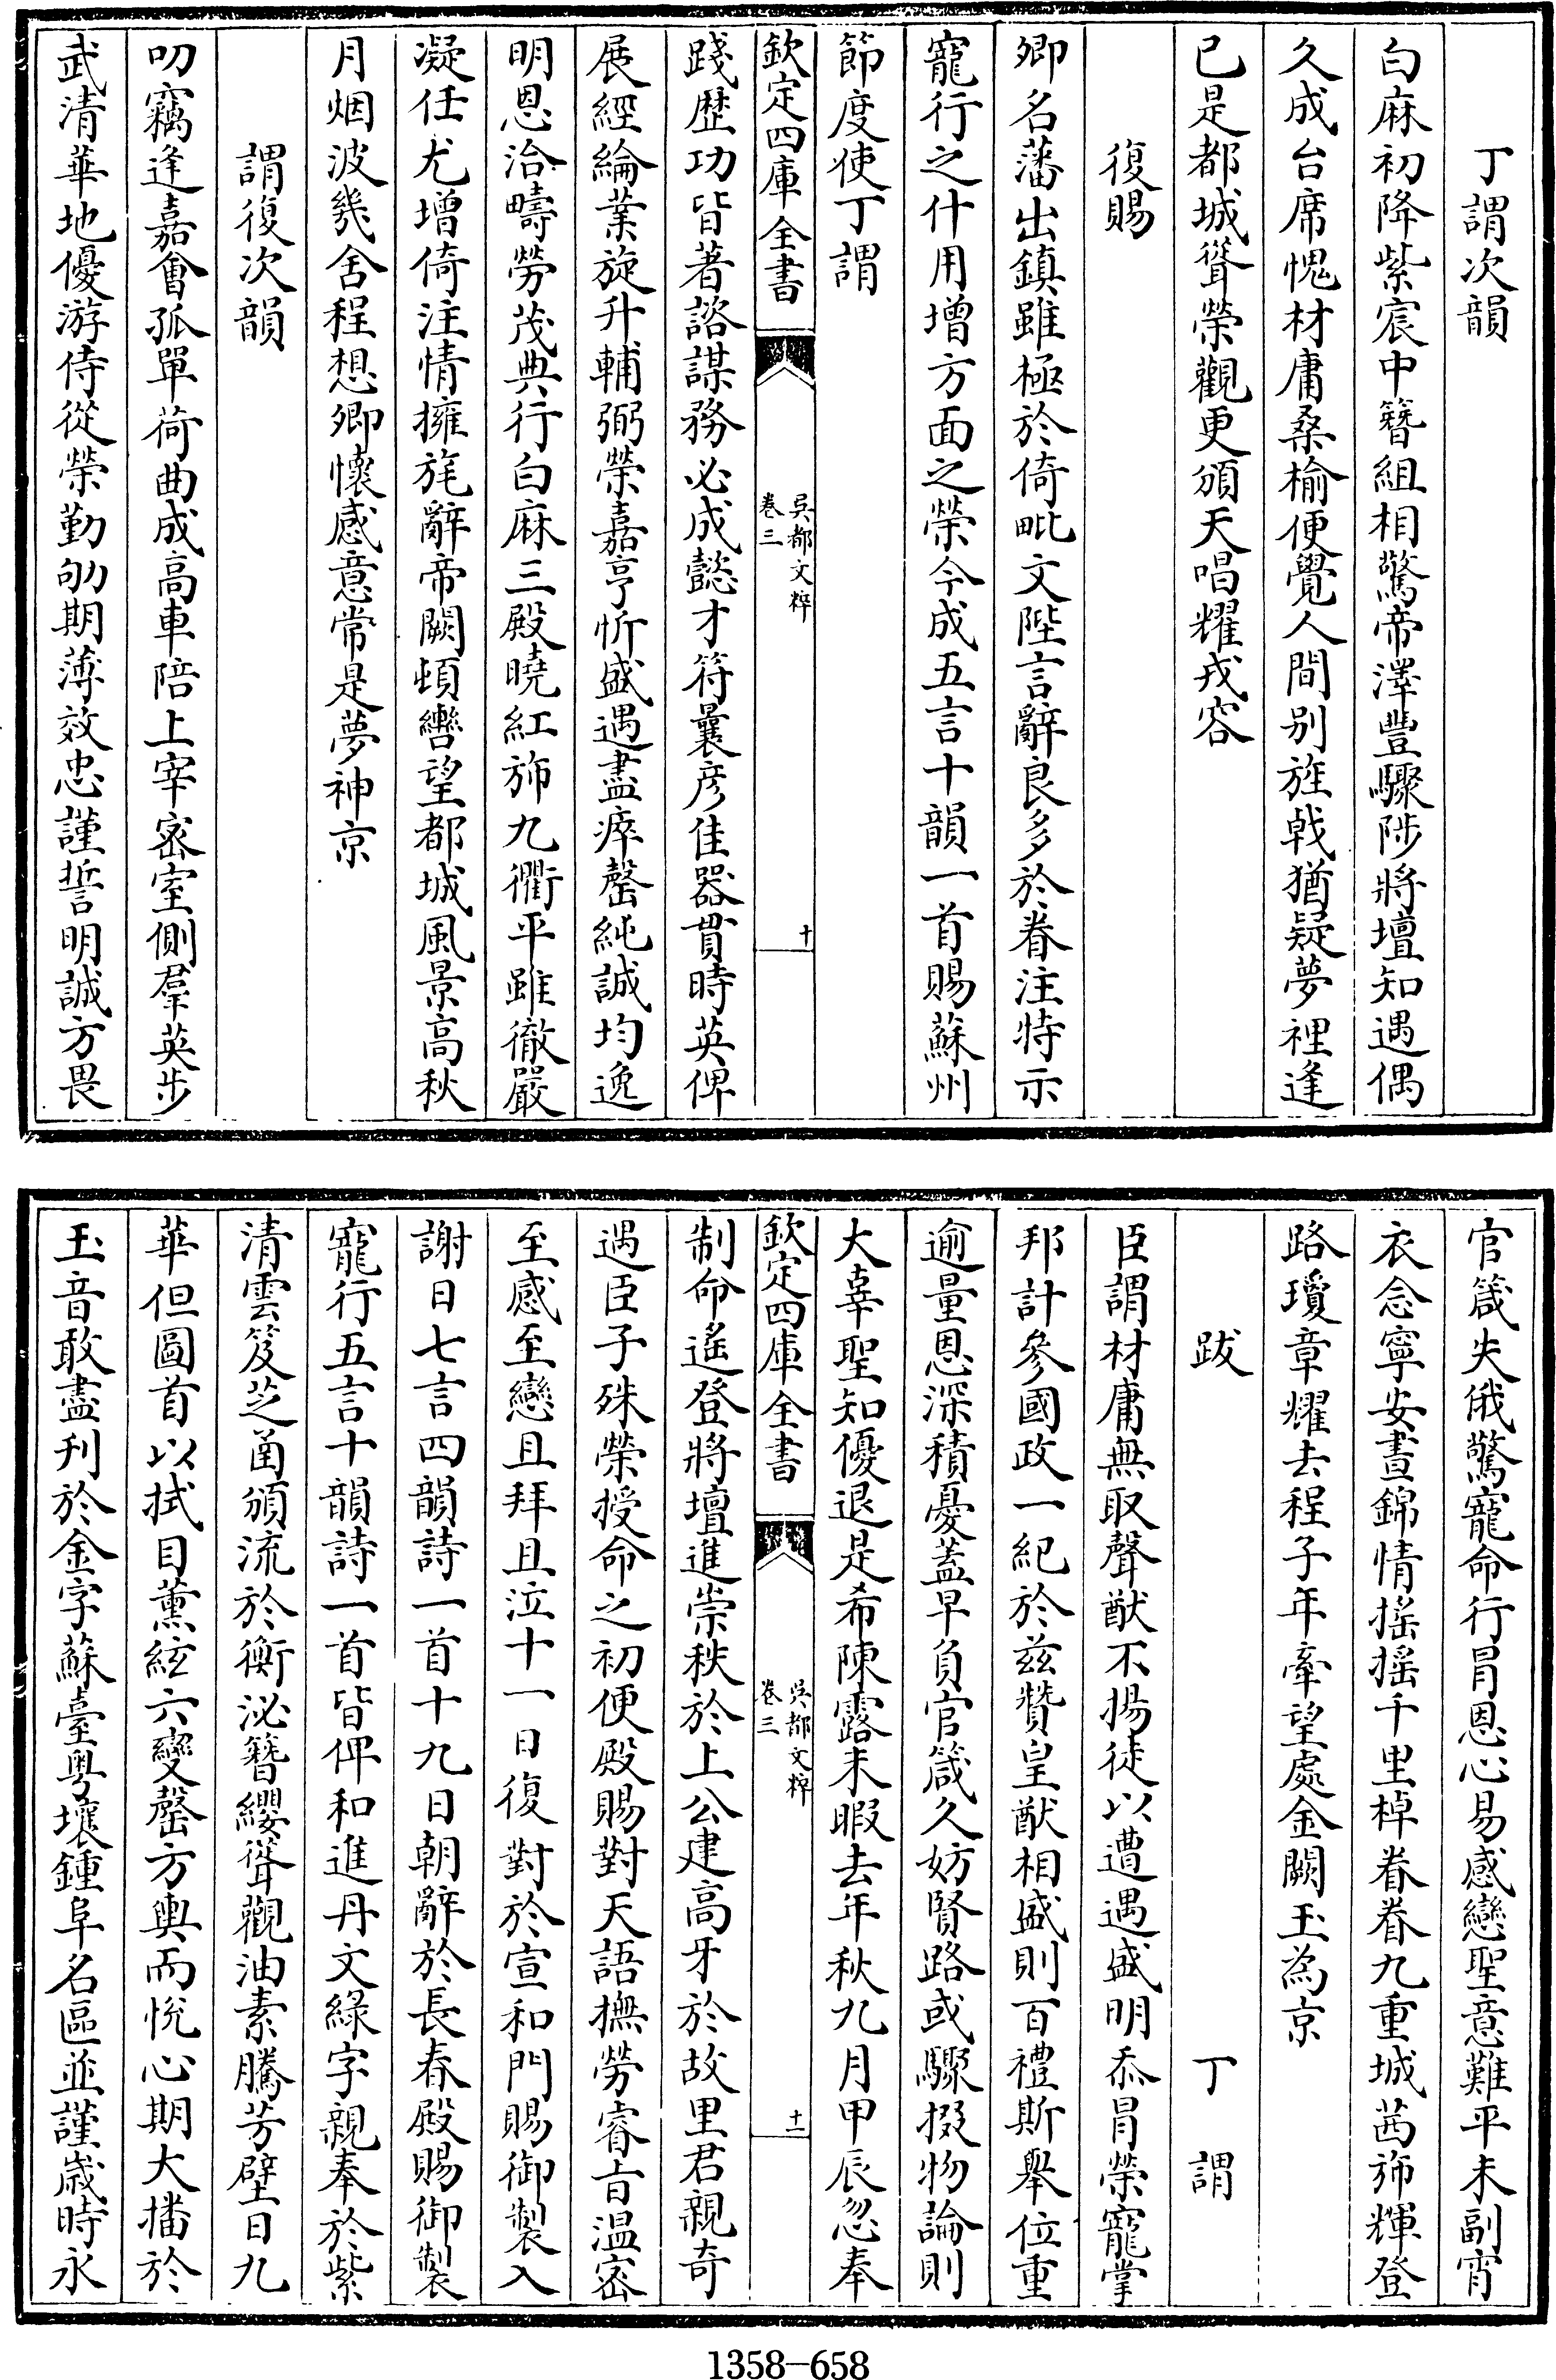 丁謂次韻
白麻初降紫宸中簪組相驚帝澤豐驟陟將壇知遇偶
久成台席愧材庸桑榆便覺人間别旌戟猶疑夢裡逢
已是都城聳榮觀更頒天唱耀戎容
復賜
卿名藩出鎮雖極於倚毗文陛言辭良多於眷注特示
寵行之什用增方面之榮今成五言十韻一首賜蘇州
節度使丁謂
欽定四庫全書
吳都文粹
卷三
十
踐歴功皆著諮謀務必成懿才符曩彦佳器貫時英俾
展經綸業旋升輔弼榮嘉亨忻盛遇盡瘁罄純誠均逸
明恩洽疇勞茂典行白麻三殿曉紅斾九衢平雖徹嚴
凝任尤增倚注情擁旄辭帝闕頓轡望都城風景高秋
月烟波幾舍程想卿懷感意常是夢神京
謂復次韻
叨竊逢嘉會孤單荷曲成高車陪上宰宻室側羣英步
武清華地優游侍從榮勤劬期薄效忠謹誓明誠方畏
官箴失俄驚寵命行冐恩心易感戀聖意難平未副宵
衣念寧安晝錦情搖搖千里棹眷眷九重城茜斾輝登
路瓊章耀去程子年牽望處金闕玉為京
跋
丁謂
臣謂材庸無取聲猷不揚徒以遭遇盛明忝冐榮寵掌
邦計參國政一紀於兹贊皇猷相盛則百禮斯舉位重
逾量恩深積憂蓋早負官箴久妨賢路或驟掇物論則
大辜聖知優退是希陳露未暇去年秋九月甲辰忽奉
欽定四庫全書
吳都文粹
卷三
十一
制命遙登將壇進崇秩於上公建高牙於故里君親奇
遇臣子殊榮授命之初便殿賜對天語撫勞睿旨温宻
至感至戀且拜且泣十一日復對於宣和門賜御製入
謝日七言四韻詩一首十九日朝辭於長春殿賜御製
寵行五言十韻詩一首皆俾和進丹文綠字親奉於紫
清雲笈芝函頒流於衡泌簪纓聳觀油素騰芳壁日九
華但圖首以拭目薫絃六變罄方輿而恱心期大播於
玉音敢盡刋於金字蘇臺粤壤鍾阜名區並謹歲時永
1358—658